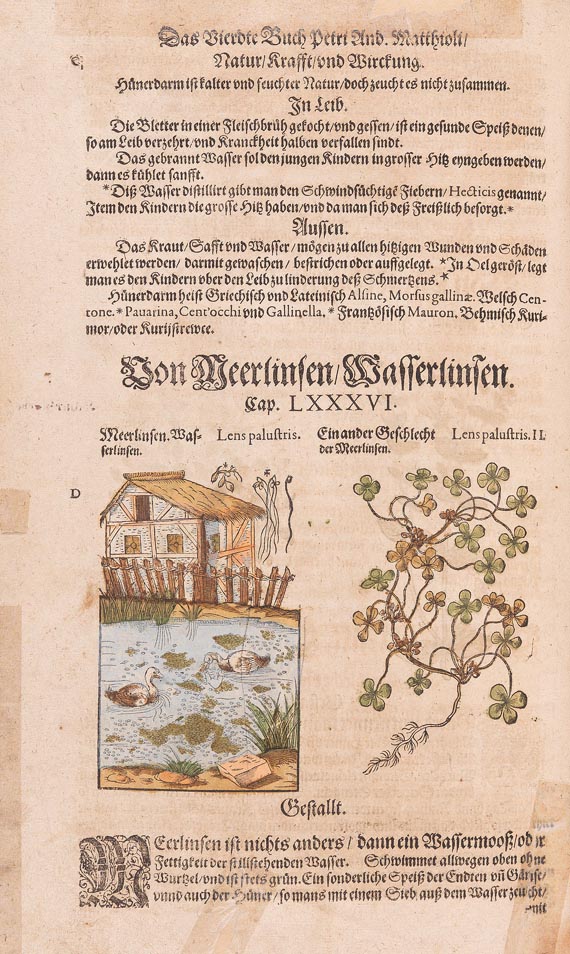 Das Vierdte Buch Petri And. Matthioli/
Natur/Krafft/vnd Wirckung.
C
Hünerdarm ist kalter vnd feuchter Natur/doch zeucht es nicht zusammen.
In Leib.
Die Bletter in einer Fleischbrüh gekocht/vnd gessen/ist ein gesunde Speiß denen/
so am Leib verzehrt/vnd Kranckheit halben verfallen sindt.
Das gebrannt Wasser sol den jungen Kindern in grosser Hitz eyngeben werden/
dann es kühlet sanfft.
*Diß Wasser distillirt gibt man den Schwindsüchtigē Fiebern/Hecticis genannt/
Item den Kindern die grosse Hitz haben/vnd da man sich deß Freißlich besorgt.*
Aussen.
Das Kraut/Safft vnd Wasser/mögen zu allen hitzigen Wunden vnd Schäden
erwehlet werden/darmit gewaschen/bestrichen oder auffgelegt. *In Oel geröst/legt
man es den Kindern vber den Leib zu linderung deß Schmertzens.*
Hünerdarm heist Griechisch vnd Lateinisch Alsine, Morsus gallinæ. Welsch Cen-
tone.* Pauarina, Cent'occhi vnd Gallinella.* Frantzösisch Mauron. Behmisch Kuri-
mor/oder Kurijstrewce.
Von Meerlinsen/Wasserlinsen.
Cap. LXXXVI.
Meerlinsen. Was-
serlinsen.
Lens palustris.
Ein ander Geschlecht
der Meerlinsen.
Lens palustris. II.
D
Gestallt.
MEerlinsen ist nichts anders/dann ein Wassermooß/oder
Fettigkeit der stillstehenden Wasser. Schwimmet allwegen oben ohne
Wurtzel/vnd ist stets grün. Ein sonderliche Speiß der Endten vñ Gänse/
vnnd auch der Hüner/so mans mit einem Sieb auß dem Wasser zeucht/
mit